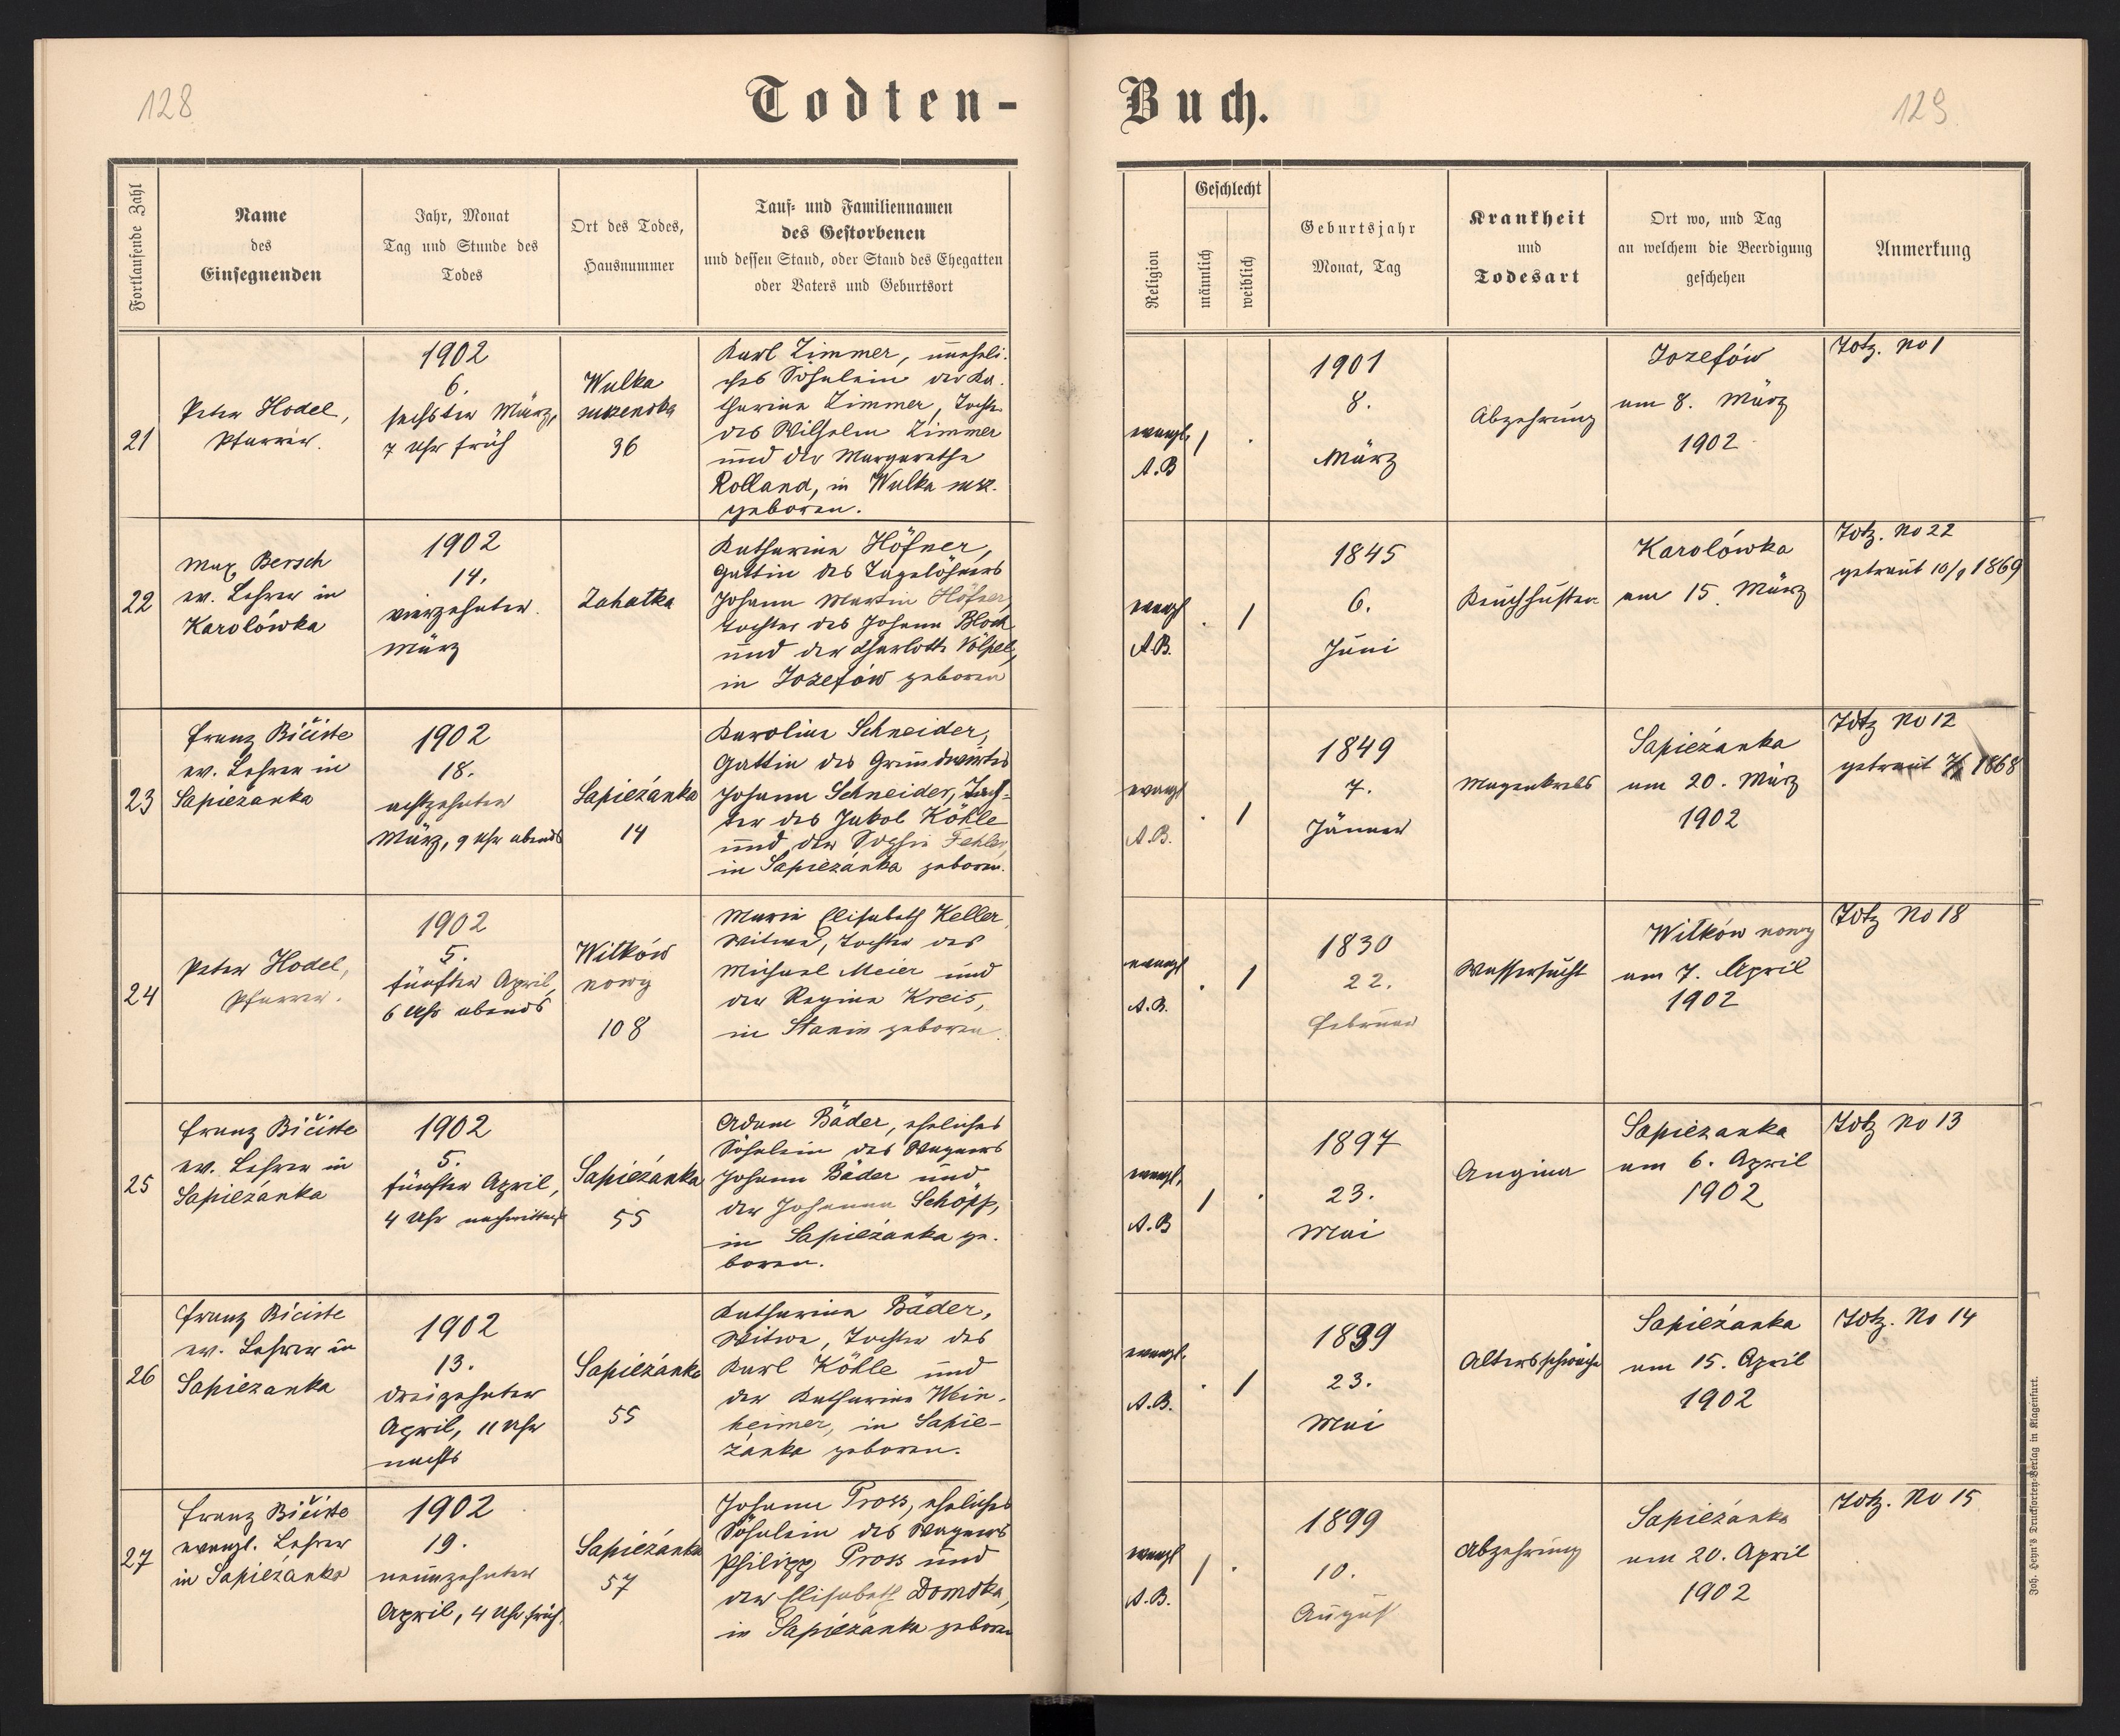 128
Todten-
Fortlaufende Zahl
Name
des
Einsegnenden
Jahr, Monat
Tag und Stunde des
Todes
Ort des Todes,
Hausnummer
Tauf- und Familiennamen
des Gestorbenen
und dessen Stand, oder Stand des Ehegatten
oder Vaters und Geburtsort
21
Peter Hodel,
Pfarrer.
1902
6.
sechster März,
7 Uhr früh
Wulka
mazenska
36
Karl Zimmer, uneheli-
ches Söhnlein der Ka-
tharina Zimmer, Tocht.
des Wilhelm Zimmer
und der Margarethe
Rolland, in Wulka maz.
geboren.
22
Max Bersch
ev. Lehrer in
Karolówka
1902
14.
vierzehnter
März
Zahatka
Katharina Höfner,
Gattin des Tagelöhners
Johann Martin Höfner,
Tochter des Johann Bloch
und der Charlotte Völpel,
in Jozefów geboren
23
Franz Bičiste
ev. Lehrer in
Sapiezanka
1902
18.
achtzehnter
März, 9 Uhr abends
Sapieżanka
14
Karolina Schneider,
Gattin des Grundwirtes
Johann Schneider, Toch-
ter des Jakob Köhle
und der Sophie Fehler,
in Sapieżanka geboren.
24
Peter Hodel,
Pfarrer.
1902
5.
fünfter April,
6 Uhr abends
Witków
nowy
108
Maria Elisabeth Keller,
Witwe, Tochter des
Michael Meier und
der Regina Kreis,
in Stanin geboren.
25
Franz Bičiste
ev. Lehrer in
Sapieżanka
1902
5.
fünfter April,
4 Uhr nachmittags
Sapieżanka
55
Adam Bäder, eheliches
Söhnlein des Wagners
Johann Bäder und
der Johanna Schöpp,
in Sapieżanka ge-
boren.
26
Franz Biciste
ev. Lehrer in
Sapiezanka
1902
13.
dreizehnter
April, 11 Uhr
nachts
Sapieżanka
55
Katharina Bäder,
Witwe, Tochter des
Karl Köhle und
der Katharina Wein-
heimer, in Sapie-
żanka geboren.
27
Franz Bičiste
evangl. Lehrer
in Sapieżanka
1902
19.
neunzehnter
April, 4 Uhr früh.
Sapieżanka
57
Johann Pross, eheliches
Söhnlein des Wagners
Philipp Pross und
der Elisabeth Domska,
in Sapieżanka geboren
129
Buch.
Religion
Geschlecht
männlich
weiblich
Geburtsjahr
Monat, Tag
Krankheit
und
Todesart
Ort wo, und Tag
an welchem die Beerdigung
geschehen
Anmerkung
evangl.
A.B
1
.
1901
8.
März
Abzehrung
Jozefów
am 8. März
1902
Totz. No 1
evangl
A.B.
.
1
1845
6.
Juni
Keuchhusten
Karolówka
am 15. März
Totz. No 22
getraut 10/9 1869
evangl
A.B.
.
1
1849
7.
Jänner
Magenkrebs
Sapieżanka
am 20. März
1902
Totz No 12
getraut 1868
evangl
A.B.
.
1
1830
22.
Februar
Wassersucht
Witków nowy
am 7. April
1902
Totz No 18
evangl.
A.B
1
.
1897
23.
Mai
Angina
Sapiezanka
am 6. April
1902
Totz No 13
evangl.
A.B.
.
1
23.
Mai
Altersschwäche
Sapieżanka
am 15. April
1902
Totz. No 14
evangl
A.B.
1
.
1899
10.
August
Abzehrung
Sapieżanka
am 20. April
1902
Totz. No 15
Joh. Heyn's Drucksorten-Verlag in Klagenfurt.